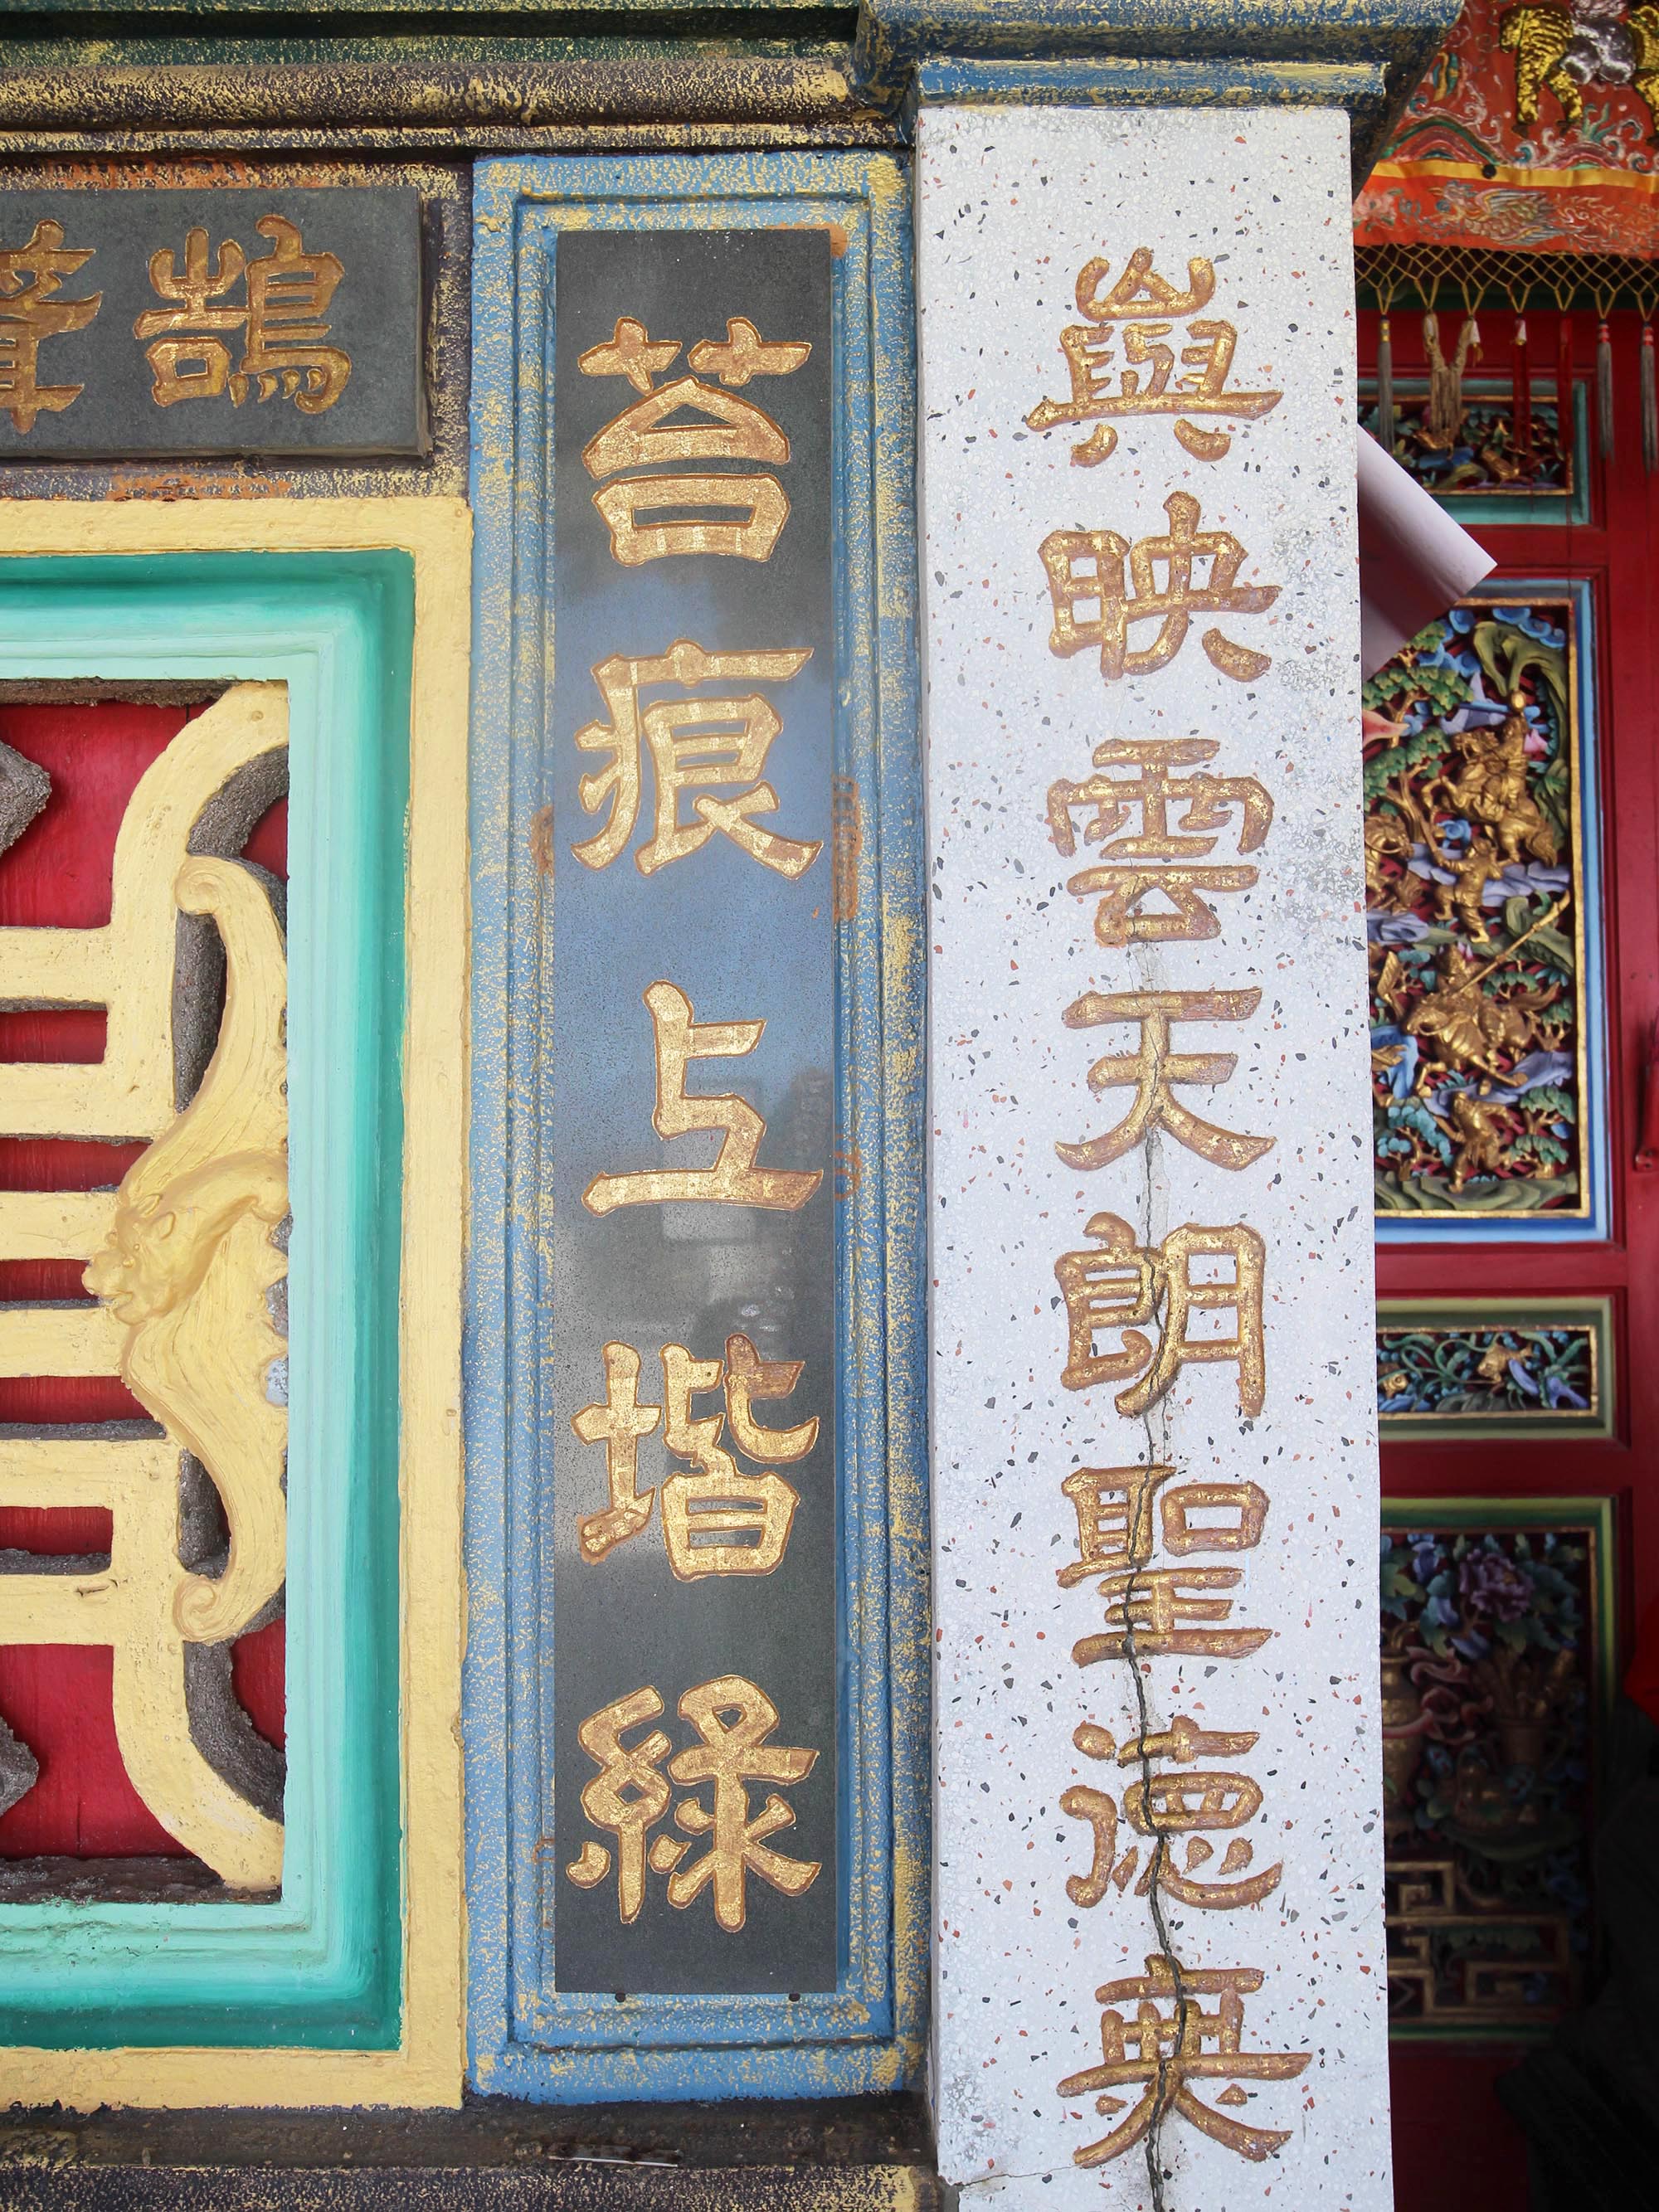 㠘映雲天朗聖德
苔痕上堦綠
鵠